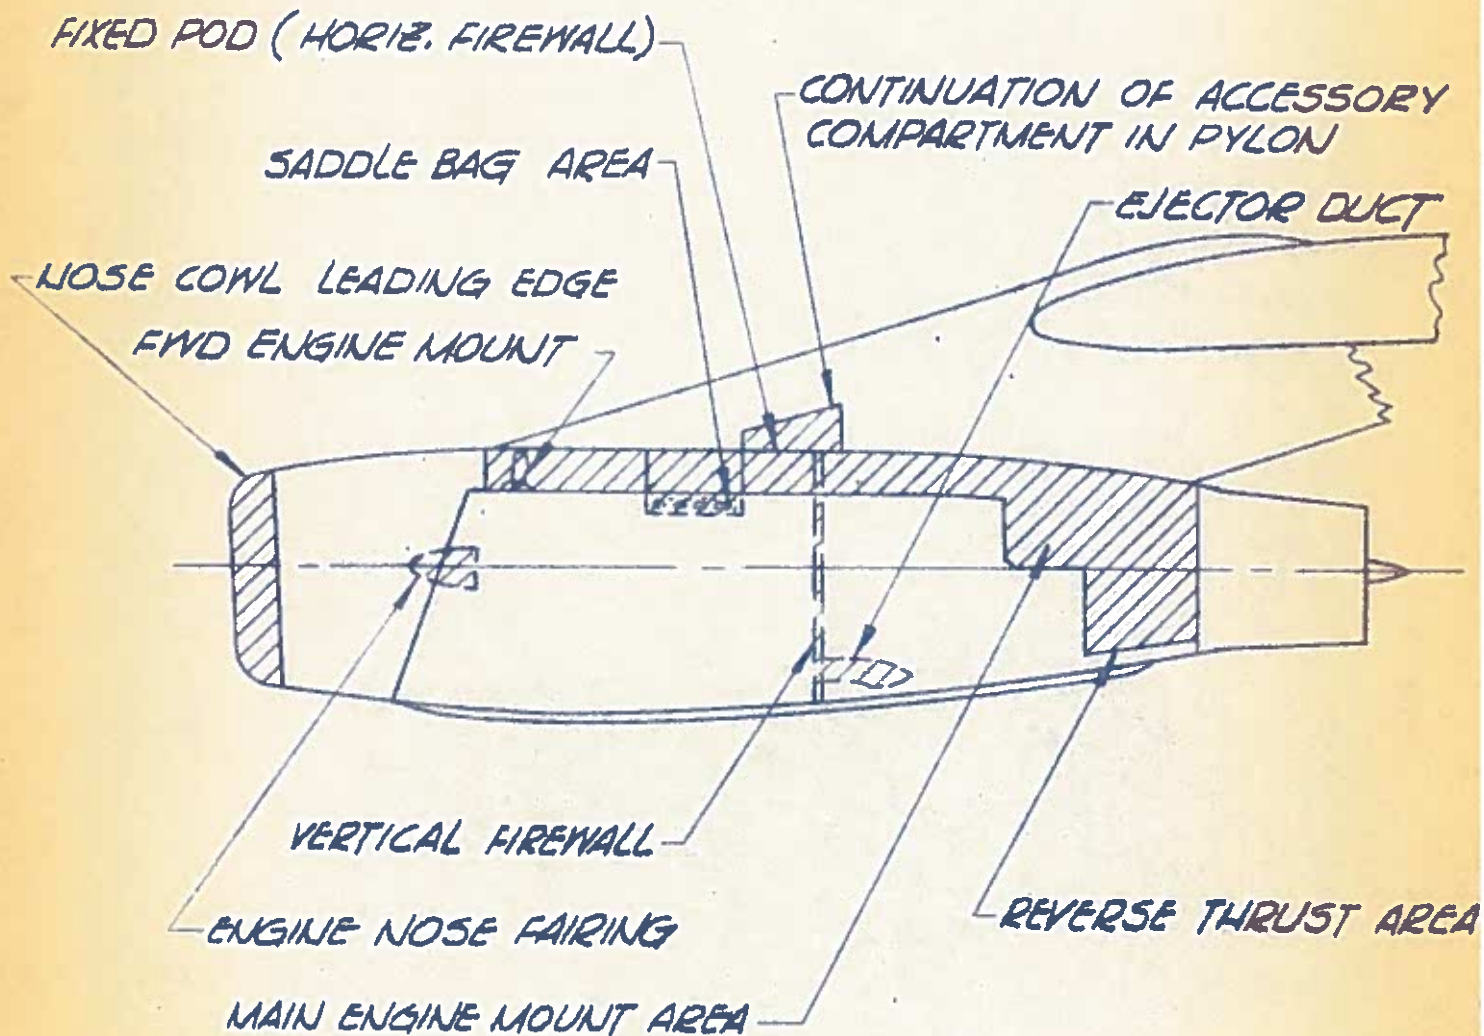 FIXED POD (HORIZ. FIREWALL)
CONTINUATION OF ACCESSORY
COMPARTMENT IN PYLON
SADDLE BAG AREA
EJECTOR DUCT
NOSE COWL LEADING EDGE
FWD ENGINE MOUNT
VERTICAL FIREWALL
ENGINE NOSE FAIRING
REVERSE THRUST AREA
MAIN ENGINE MOUNT AREA